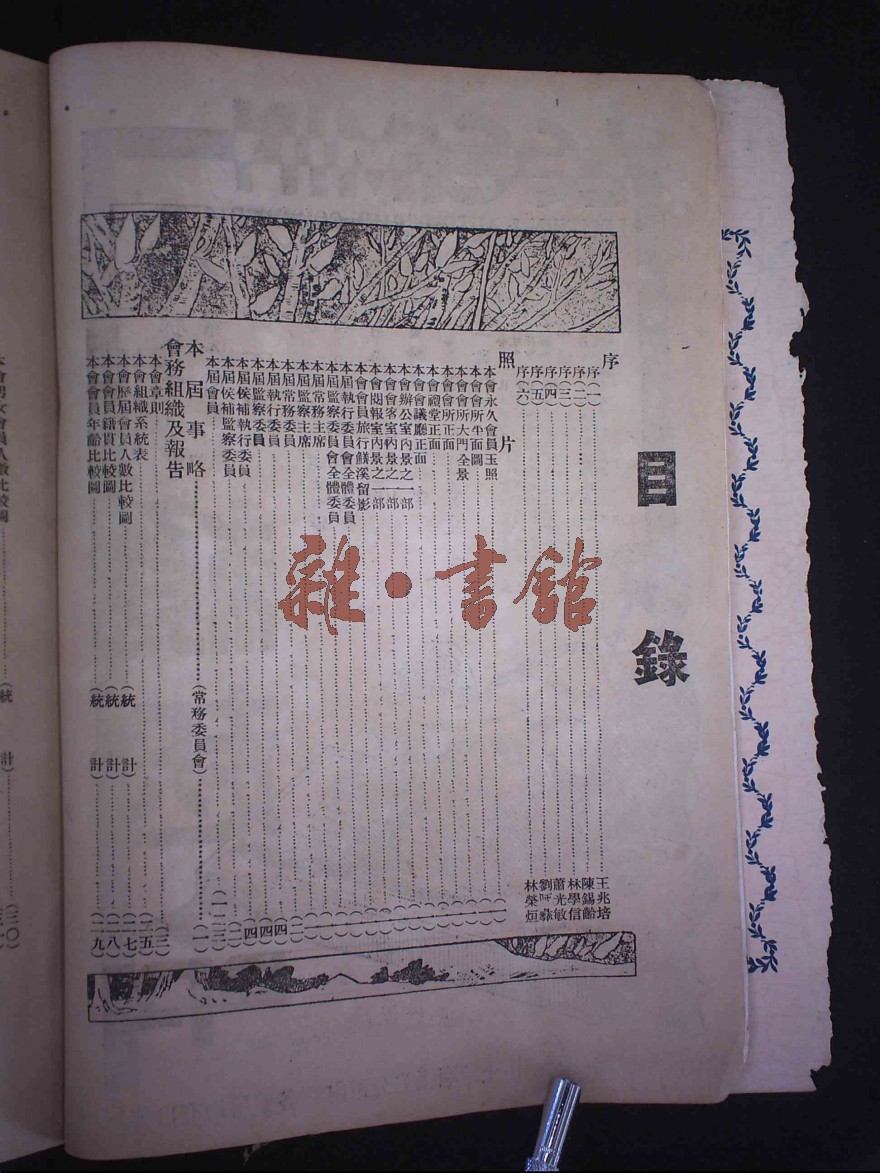 目錄
序
序(一) 王兆培
序(二) 陳錫齡
序(三) 林學信
序(四) 蕭光敏
序(五) 劉
序(六) 林榮烜
照片
本會永久會員玉照
本會會所平面圖
本會會所大門全景
本會會所正面
本會禮堂正面
本會會議廳正面
本會辦公室內景之一部
本會會客室內之一部
本會閱報室內景之一部
本會會員旅行
本屆執行委員會全體委員
本屆監察委員會全體委員
本屆常務主席
本屆監察主席
本屆常務委員
本屆執行委員
本屆監察委員
本屆候補執行委員
本屆候補監察委員
本屆會員
本屆事略 (常務委員會)
會務組織及報告
本會章則
本會組織系統表
本會歷屆會員人數比較圖 (統計)
本會會員籍貫比較圖 (統計)
本會會員年齡比較圖 (統計)
本會男女會員人數比較圖 (統計) (三〇)
雜·書館